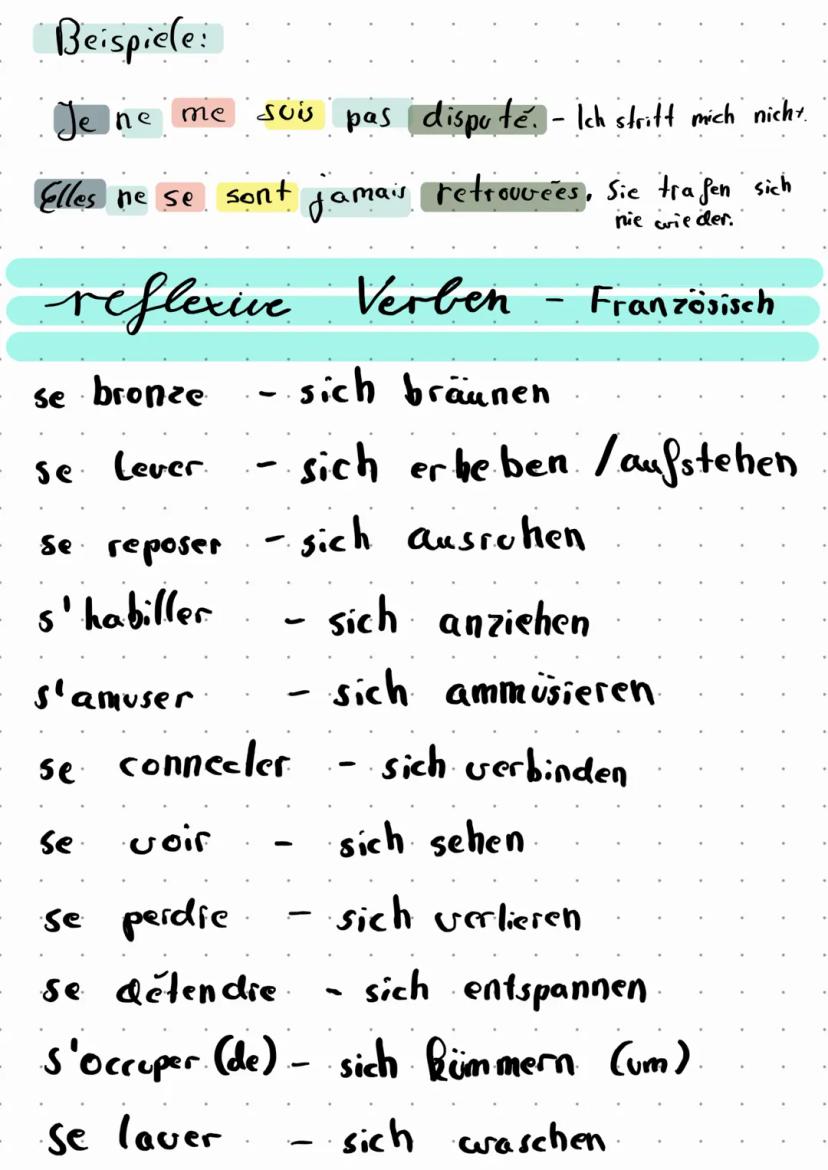 Beispiele:
Je ne me suis pas disputé. - Ich stritt mich nicht.
Elles ne se sont jamais retrouvées. Sie trafen sich
nie wieder.
reflexive Verben - Französisch
se bronze - sich bräunen
se lever - sich erheben / aufstehen
se reposer - sich ausruhen
s'habiller - sich anziehen
s'amuser - sich ammüsieren
se connecter - sich verbinden
se voir - sich sehen
se perdre - sich verlieren
se détendre - sich entspannen
s'occuper (de) - sich kümmern (um)
se laver - sich waschen